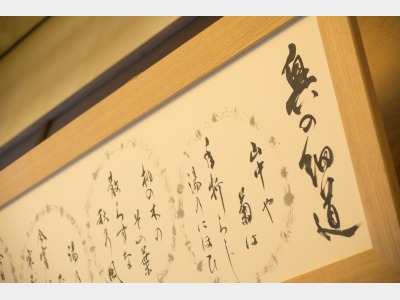 奥の細道
山中や
菊は
手折らじ
湯のにほひ
桃の木の
その葉
散らすな
秋の風
湯の
今宵